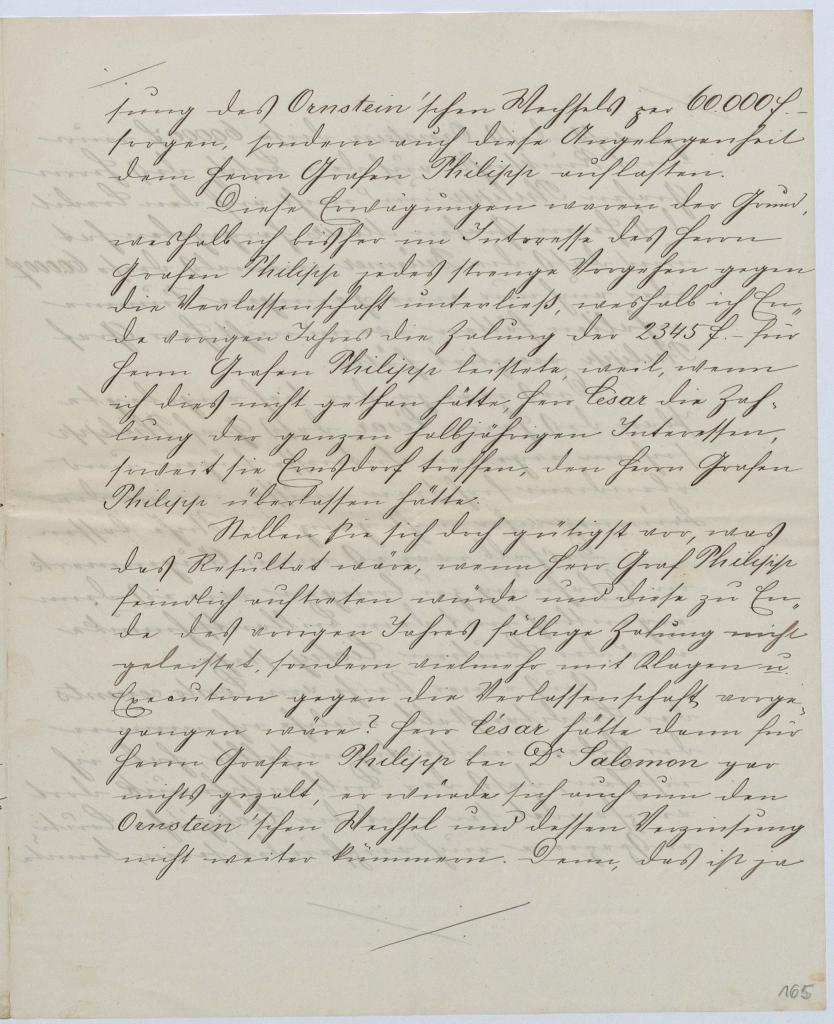 sung des Ornstein'schen Wechsels per 60.000 f.–
sorgen, sondern auch diese Angelegenheit
dem Herrn Grafen Philipp auflasten.
Diese Erwägungen waren der Grund,
weshalb ich bisher im Interesse des Herrn
Grafen Philipp jedes strenge Vorgehen gegen
die Verlassenschaft unterließ, weshalb ich En„
de vorigen Jahres die Zalung der 2345 f.– für
Herrn Grafen Philipp leistete, weil, wenn
ich dies nicht gethan hätte, Herr César die Zah„
lung der ganzen halbjährigen Interessen,
soweit sie Ernsdorf treffen, den Herrn Grafen
Philipp überlassen hätte.
Stellen Sie sich doch gütigst vor, was
das Resultat wäre, wenn Herr Graf Philipp
feindlich auftreten würde und diese zu En„
de des vorigen Jahres fällige Zalung nicht
geleistet, sondern vielmehr mit Klagen u.
Execution gegen die Verlassenschaft vorge„
gangen wäre? Herr César hätte dann für
Herrn Grafen Philipp bei Dr. Salomon gar
nichts gezalt, er würde sich auch um den
Ornstein'schen Wechsel und dessen Verzinsung
nicht weiter kümmern. Denn, das ist ja
165